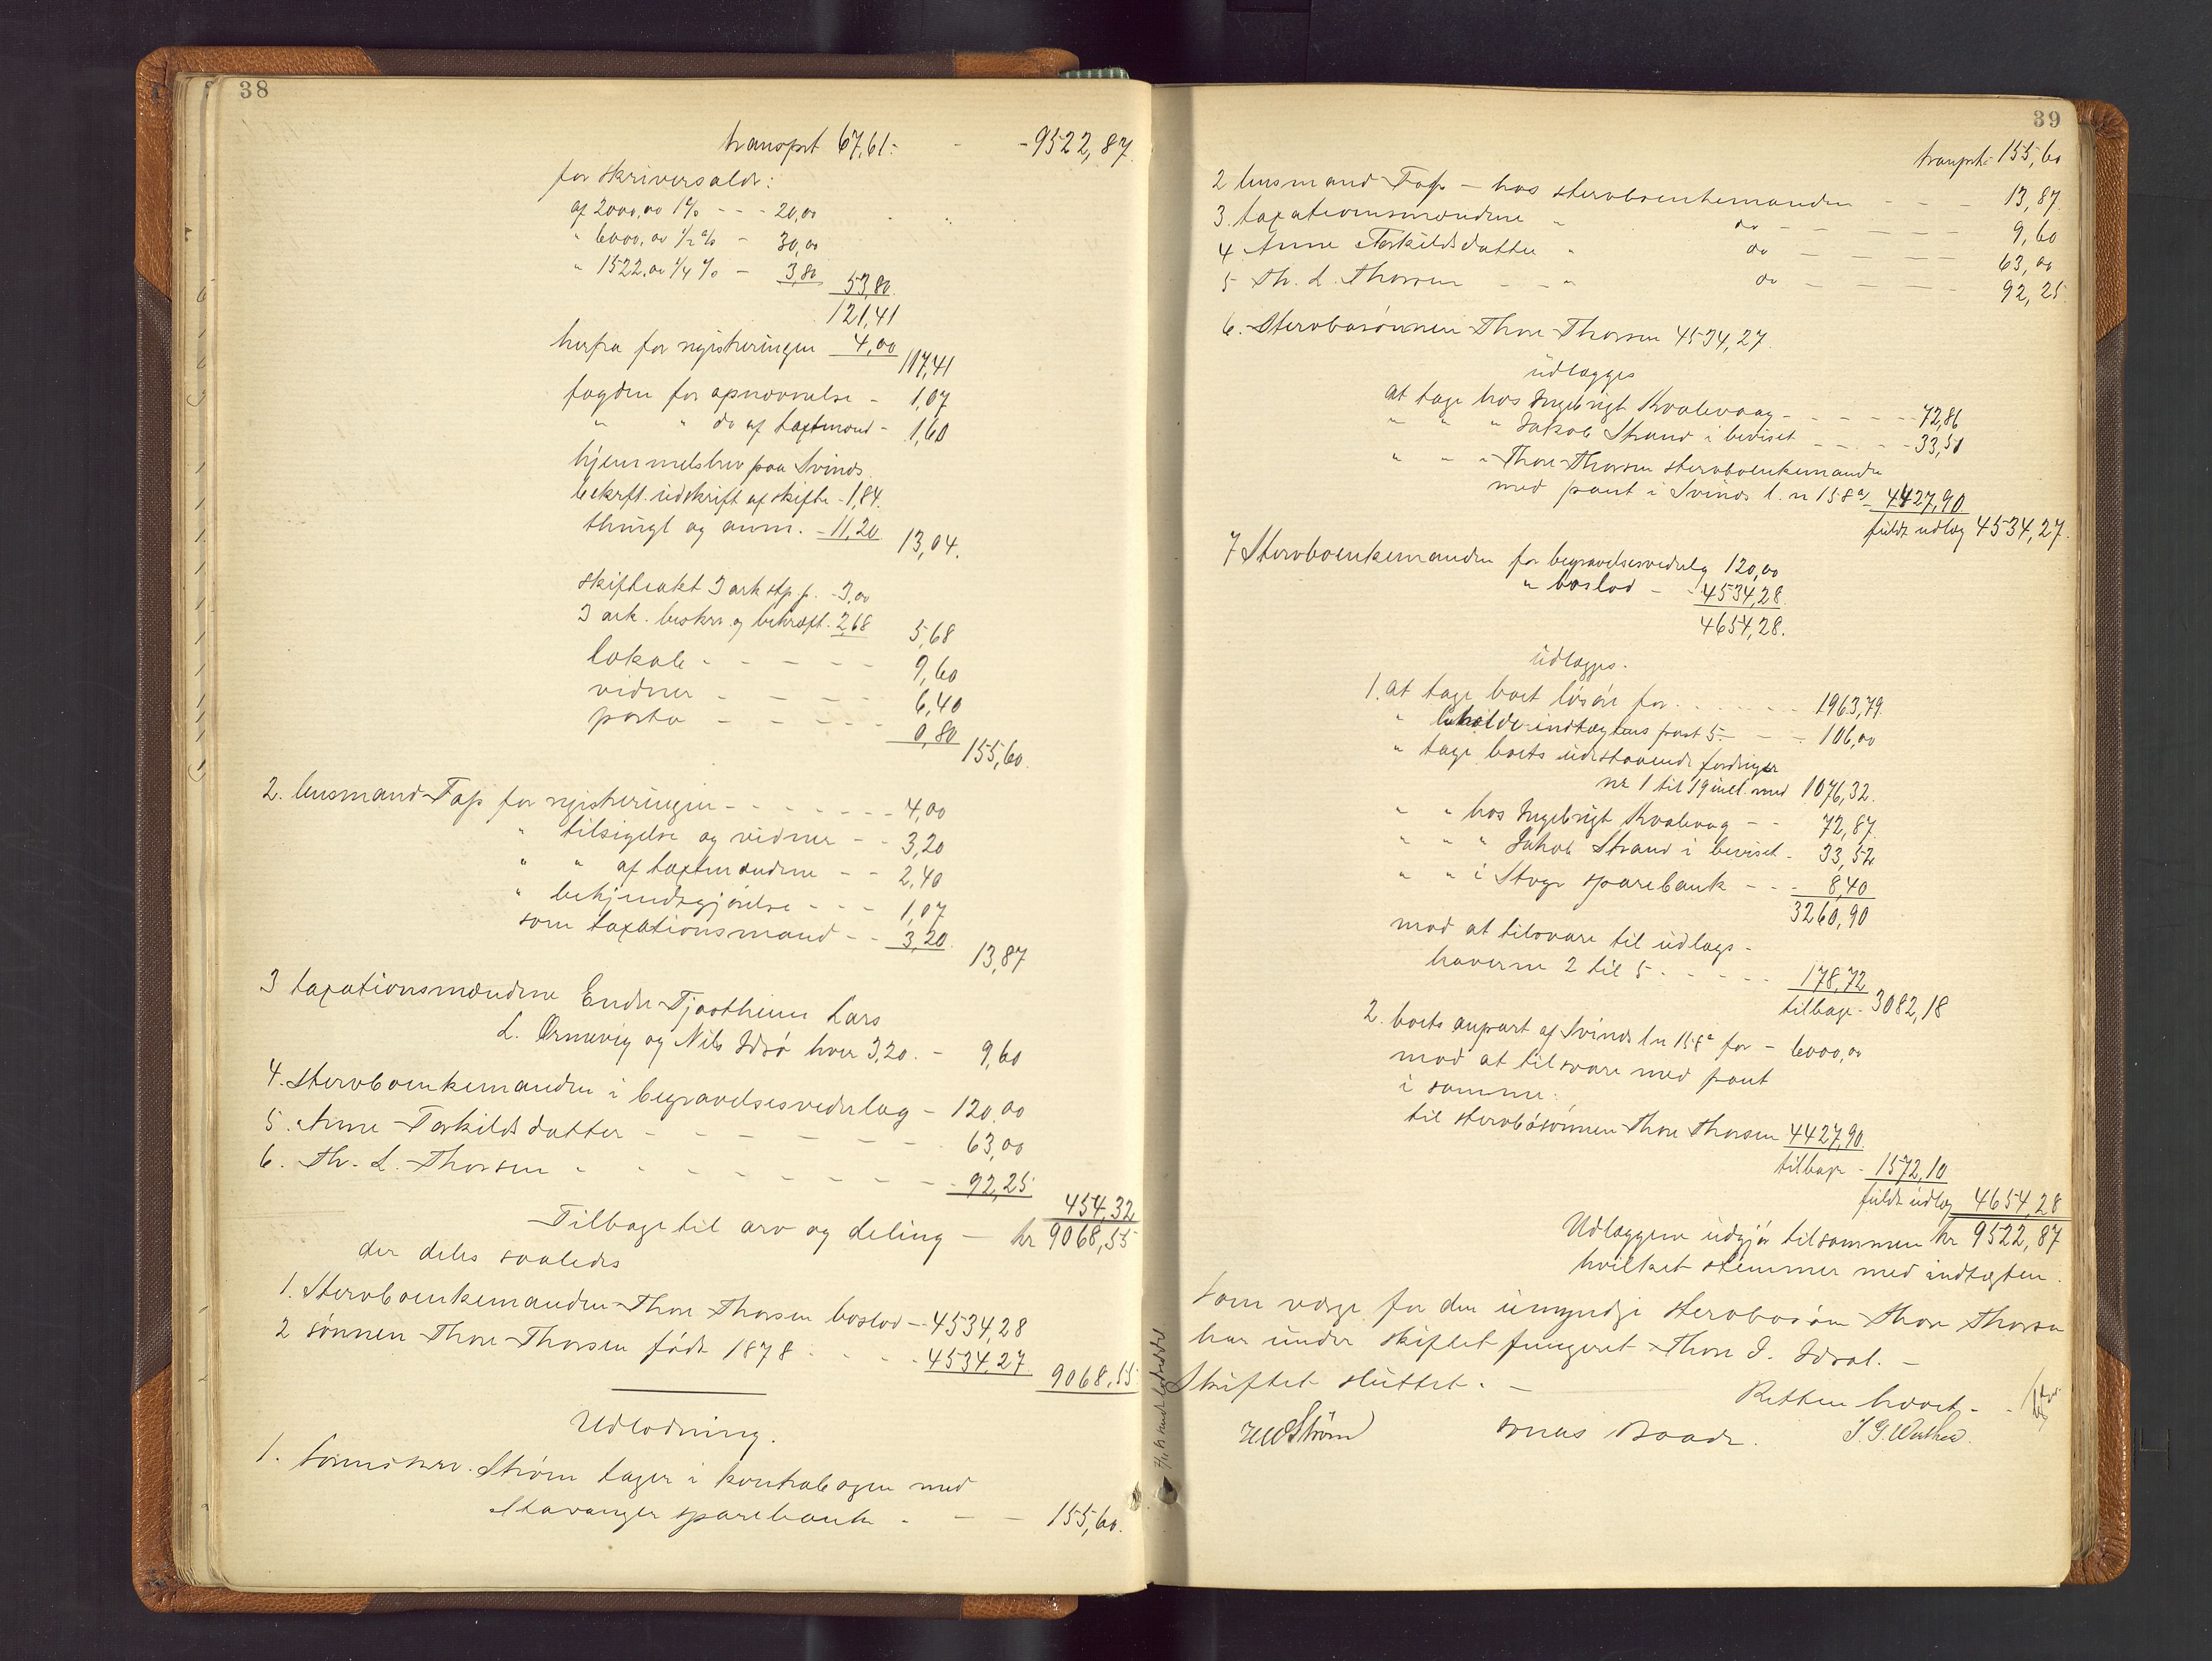 38
transprt 67,61: - - 9522,87
for skriversaldr:
af 2000,00 1% - - - 20,00
" 6000,00 1/2 % - 30,00
" 1522,00 1/4 % - 3,80 53,80
121,41
herfra for registreringen 4,00 117,41
fogden for opnævnelse - 1,07
" " do af taxtmænd - 1,60
hjemmelsbrev paa Svinds
bekrft. udskrift af skifte - 1,84
thingl og anm. - 11,20 13,04.
skifteakt 3 ark stp. p. - 3,00
3 ark. beskr. og bekræft. 2,68 5,68
lokale - - - - - 9,60
vidner - - - - 6,40
porto - - - - - 0,80 155,60
2. lensmand Fap for registreringen - - - - - - 4,00
" tilsigelse og vidner - - 3,20
" " af taxtmændene - - 2,40
" bekjendtgjørelse - - - 1,07
som taxationsmand - - 3,20 13,87
3 taxationsmændene Endre Tjøstheim Lars
L. Ørnevig og Nils Idsø hver 3,20. - 9,60
4. Stervboenkemanden i begravelsesvederlag - 120,00
5. Anne Torkildsdatter - - - - - - - 63,00
6. Th. L. Thorsen - - - - - - - - 92,25 454,32
Tilbage til arv og deling - kr 9068,55
der deles saaledes
1. Stervboenkemanden Thore Thorsen boslod - 4534,28
2 sønnen Thore Thorsen født 1878 - - - - 4534,27 9068,55
Udlodning.
1. Sorenskrv. Strøm tager i kontrabogen med
Stavanger sparebank - - - 155,60.
39
transprt 155,60
2 lensmand Fap - hos stervboenkemanden - - - 13,87
3. taxationsmændene " do - - - - - 9,60
4. Anne Torkildsdatter " do - - - - - 63,00
5 Th. L. Thorsen - - " do - - - - 92,25
6. Stervbosønnen Thore Thorsen 4534,27.
udlægges
at tage hos Ingebrigt Kvalevaag - - - - - 72,86
" " " Jakob Strand i beviset - - - - 33,51
" " " Thore Thorsen stervboenkemanden
med pant i Svinds l. n 158 a - 4427,90
fuldt udlæg 4534,27.
7 Stervboenkemanden for begravelsesvederlag 120,00
" boslod - - 4534,28
4654,28.
udlægges.
1. at tage boet løsøre for - - - - - - 1963,79
" beholde indtægtens post 5. - - - 106,00
" tage boets udestaaende fordringer
nr 1 til 19 incl. med 1076,32.
" " hos Ingebrigt Kvalevaag - - 72,87
" " " Jakob Strand i beviset - 33,52
" " i Stvgr sparebank - - - 8,40
3260,90
mod at tilsvare til udlægs-
haverne 2 til 5 - - - - - 178,72
tilbage - 3082,18
2. boets anpart af Svinds l n 158 a for - 6000,00
mod at tilsvare med pant
i samme:
til stervbosønnen Thore Thorsen 4427,90
tilbage - 1572,10
fuldt udlæg 4654,28
Udlæggene udgjør tilsammen kr 9522,87
hvilket stemmer med indtægten.
Som værge for den umyndige stervbosøn Thore Thorsen
har under skiftet fungeret Thore I. Idsal. -
Skiftet sluttet. -
Retten hævet. -
Strøm